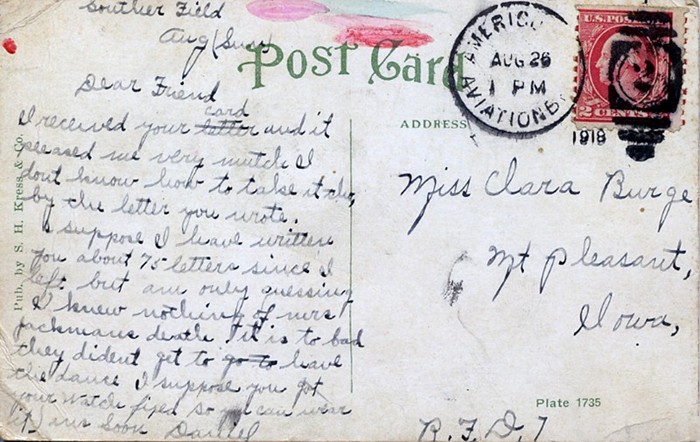 Souther Field
Aug (Sun)
Dear Friend
card
I received your letter and it
pleased me very mutch I
dont know how to take it tho,
by the letter you wrote.
I suppose I have written
you about 75 letters since I
left but am only guessing
I knew nothing of mrs
Jackmans death it is to bad
they dident get to go to have
the dance I suppose you got
your watch fixed so you can wear
it) ans soon Daniel
Pub. by S. H. Kress & Co.
Post Card
ADDRESS
AUG 26
1 PM
AVIATION
1918
U.S. POSTAGE
2 CENTS 2
Miss Clara Burge
Mt Pleasant,
Iowa,
R.F.D. 7
Plate 1735